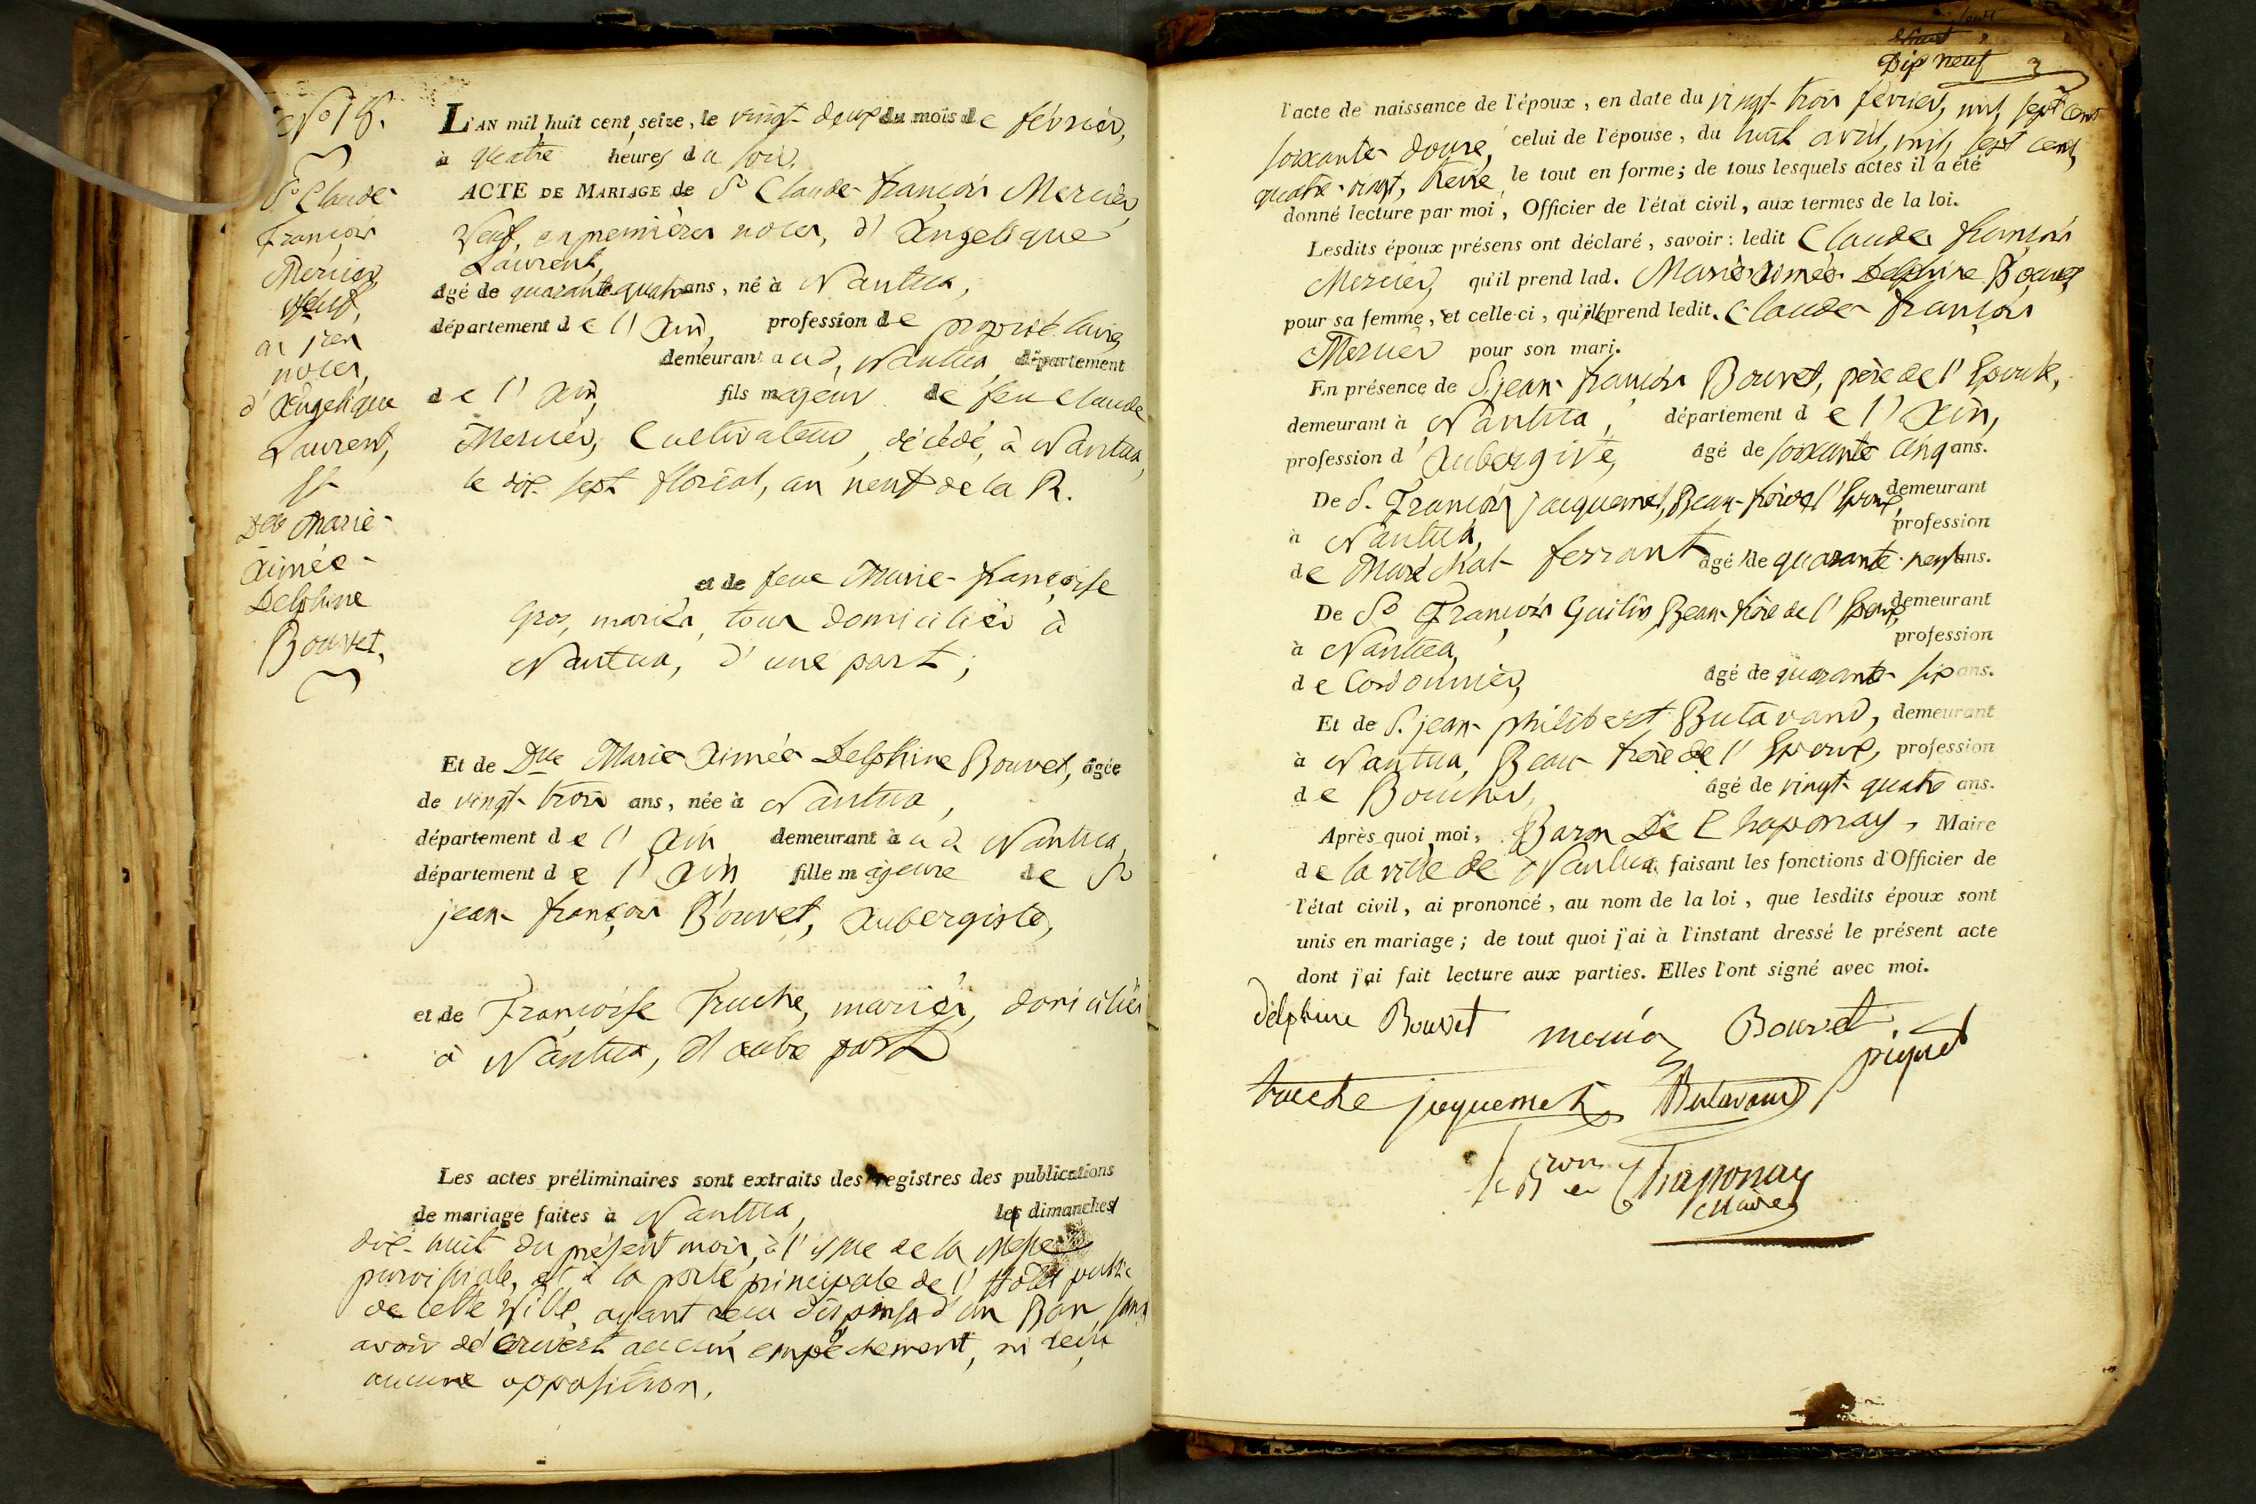 N.o 18.
S.r Claude
françois
Mercier,
veuf,
en 1.res
noces,
d'Angelique
Laurent,
et
Dlle Marie-
Aimée-
Delphine
Bouvet,
L'AN mil huit cent seize, le vingt-deux du mois de février,
à quatre heures du soir,
ACTE DE MARIAGE de S.r Claude-françois Mercier,
veuf, en premières noces, d'Angelique
Laurent,
âgé de quarante-quatre ans, né à Nantua,
département de l'Ain, profession de propriétaire,
demeurant aud. Nantua, département
de l'Ain, fils majeur de feu Claude
Mercier, Cultivateur, décédé, à Nantua,
le dix-sept floréal, an neuf de la R.
et de feue Marie-françoise
Gros, mariés, tous domiciliés à
Nantua, d'une part;
Et de Dlle Marie Aimée Delphine Bouvet, âgée
de vingt-trois ans, née à Nantua,
département de l'Ain demeurant à ud. Nantua,
département de l'Ain fille majeure de S.r
jean-françois Bouvet, Aubergiste,
et de Françoise Truche, mariés, domiciliés
à Nantua, d'autre part
Les actes préliminaires sont extraits des registres des publications
de mariage faites à Nantua, le dimanche
dix-huit du présent mois, à l'issue de la Messe
paroissiale, et à la porte principale de l'Hôtel public
de cette Ville, ayant reçu dispense d'un Ban, sans
avoir découvert aucun empêchement, ni reçu
aucune opposition.
Dix neuf
l'acte de naissance de l'époux, en date du vingt-trois février, mil sept cent
soixante-douze, celui de l'épouse, du huit avril, mil sept cent
quatre-vingt, treize, le tout en forme; de tous lesquels actes il a été
donné lecture par moi, Officier de l'état civil, aux termes de la loi.
Lesdits époux présens ont déclaré, savoir: ledit Claude françois
Mercier, qu'il prend lad. Marie Aimée Delphine Bouvet
pour sa femme, et celle-ci, qu'elle prend ledit. Claude françois
Mercier pour son mari.
En présence de S. jean-françois Bouvet, père de l'Epouse,
demeurant à Nantua, département de l'Ain,
profession d'Aubergiste, âgé de soixante cinq ans.
De S. François jacquemet, Beau-frère de l'Epoux, demeurant
à Nantua, profession
de Maréchal-ferrant âgé de quarante-neuf ans.
De S.r François Guilin, Beau-frère de l'Epoux, demeurant
à Nantua, profession
de Cordonnier, âgé de quarante-six ans.
Et de S. jean-philibert Butavand, demeurant
à Nantua, Beau-frère de l'Epoux, profession
de Boucher, âgé de vingt-quatre ans.
Après quoi moi, Baron De Chaponay, Maire
de la ville de Nantua, faisant les fonctions d'Officier de
l'état civil, ai prononcé, au nom de la loi, que lesdits époux sont
unis en mariage; de tout quoi j'ai à l'instant dressé le présent acte
dont j'ai fait lecture aux parties. Elles l'ont signé avec moi.
délphine Bouvet mercier Bouvet
truche jaquemet Butavand piquet
le B.on de Chaponay
Maire